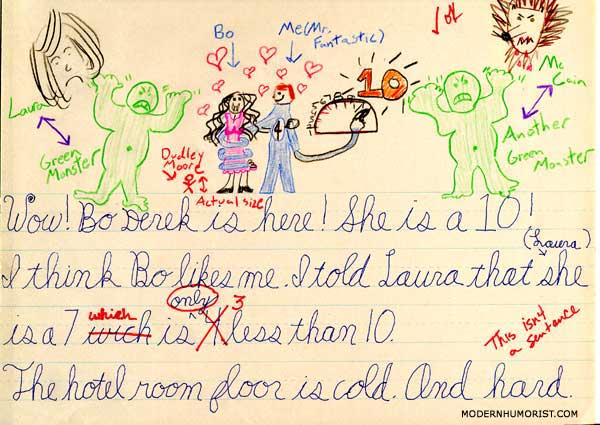 Bo
Me (Mr. Fantastic)
1 of
10
4
Laura
Green Monster
Mc Cain
Another Green Monster
Dudley Moore
Actual size
Wow! Bo Derek is here! She is a 10!
(Laura)
I think Bo likes me. I told Laura that she
which only 3
is a 7 wich is 4 less than 10.
This isn't a sentence
The hotel room floor is cold. And hard.
MODERNHUMORIST.COM